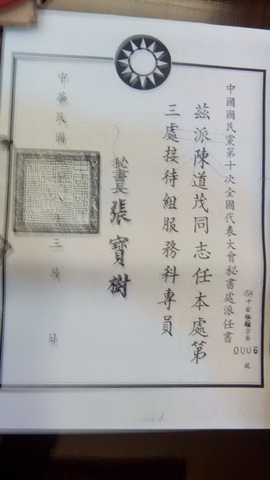 中國國民黨第十次全國代表大會秘書處派任書
0006 號
茲派陳道茂同志任本處第
三處接待組服務科專員
秘書長 張寶樹
中華民國